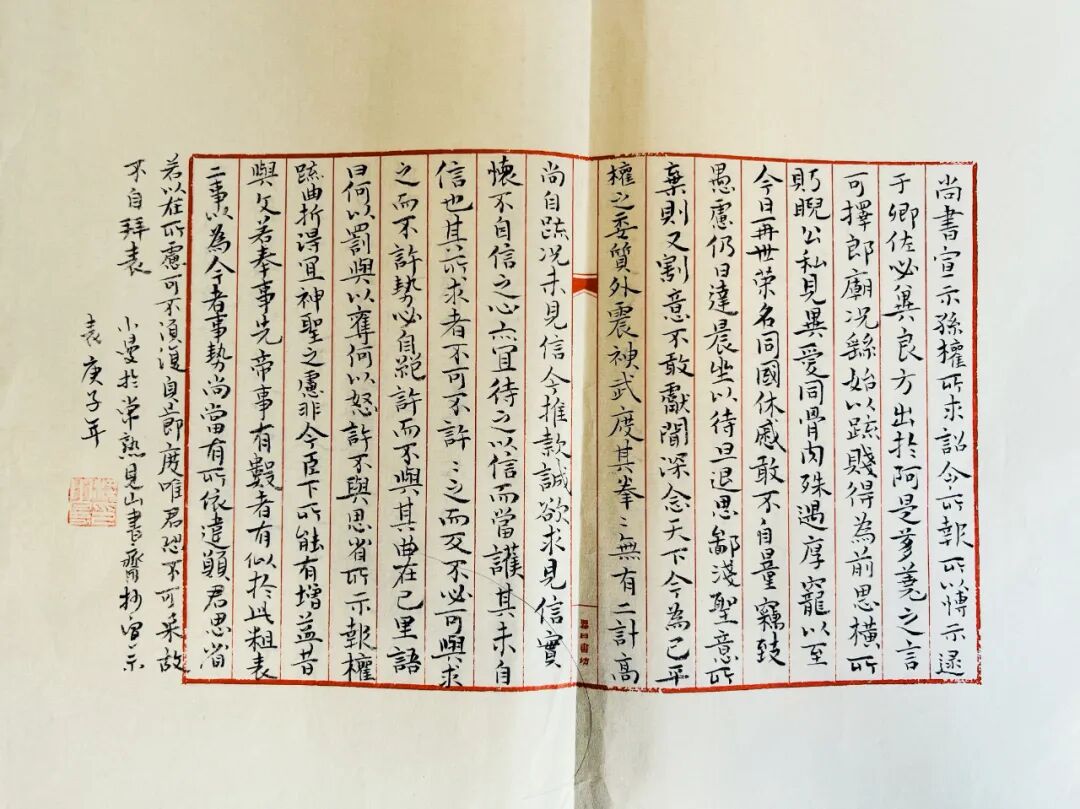 尚書宣示孫權所求詔令所報所以博示逮
于卿佐必冀良方出於阿是芻蕘之言
可擇郎廟况繇始以疏賤得為前思橫所
眄睨公私見異愛同骨肉殊遇厚寵以至
今日再世荣名同國休慼敢不自量竊致
愚慮仍日達晨坐以待旦退思鄙淺聖意所
棄則又割意不敢獻聞深念天下今為已平
權之委質外震神武度其拳〻無有二計高
尚自疏况未見信今推款誠欲求見信實
懷不自信之心亦宜待之以信而當護其未自
信也其所求者不可不許〻之而反不必可與求
之而不許勢必自絕許而不與其曲在己里語
曰何以罰與以奪何以怒許不與思省所示報權
疏曲折得宜神聖之慮非今臣下所能有增益昔
與文若奉事先帝事有數者有似於此粗表
二事以為今者事勢尚當有所依違願君思省
若以在所慮可不須復自節度唯君恐不可采故
不自拜表
小曼於常熟見山書齋抄宣示
表庚子年